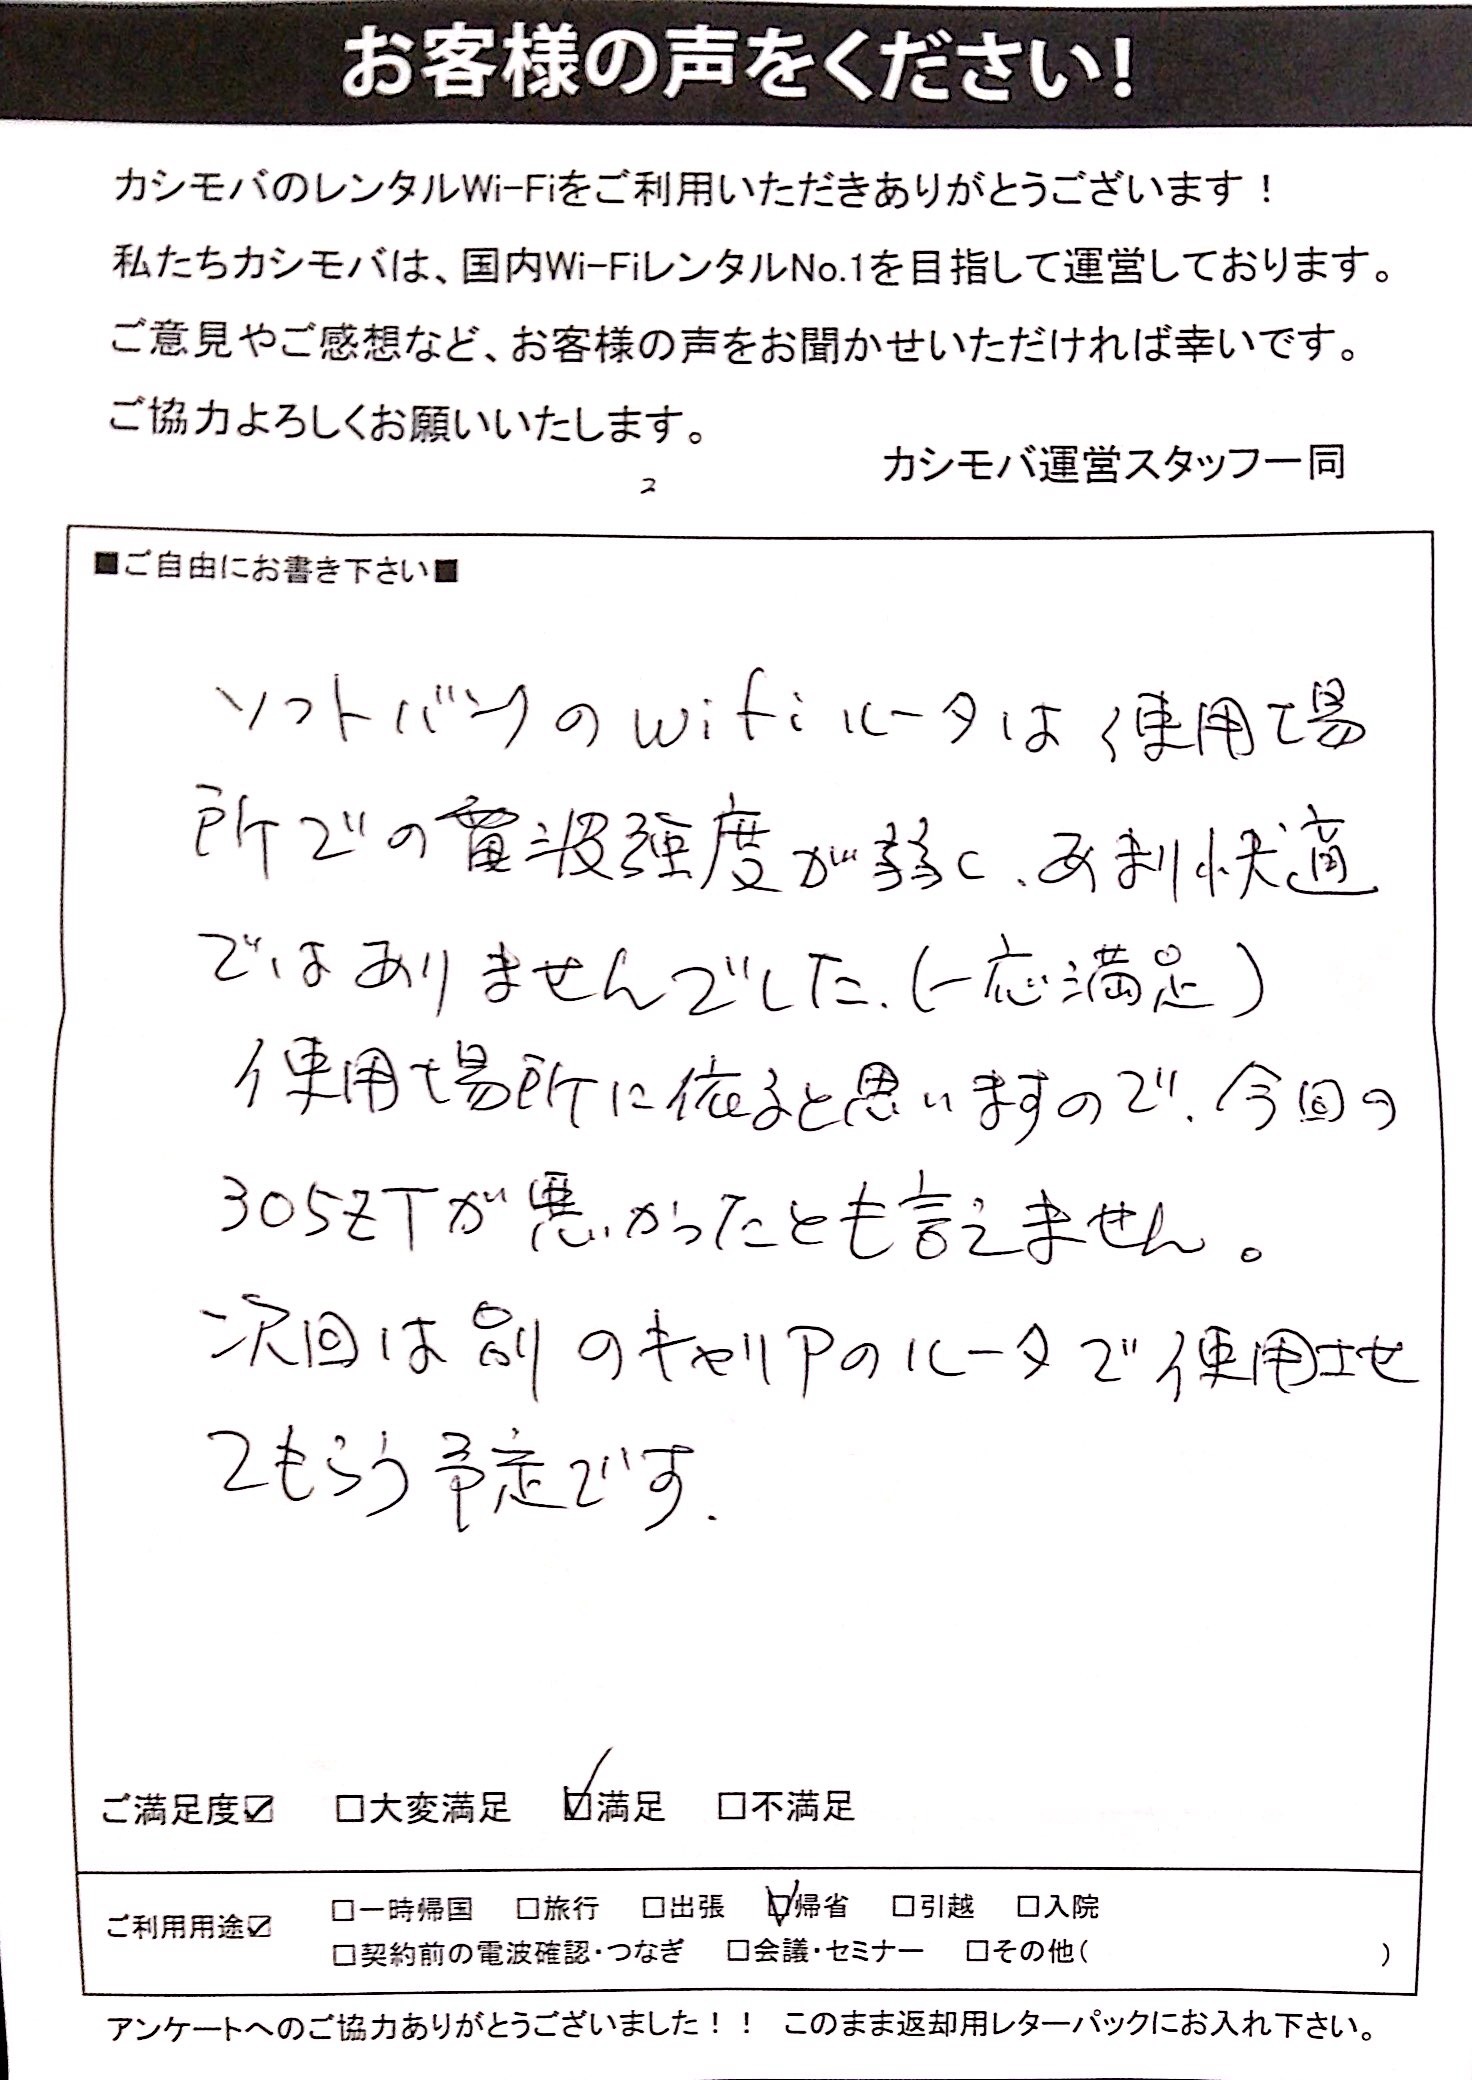 お客様の声をください！
カシモバのレンタルWi-Fiをご利用いただきありがとうございます！
私たちカシモバは、国内Wi-FiレンタルNo.1を目指して運営しております。
ご意見やご感想など、お客様の声をお聞かせいただければ幸いです。
ご協力よろしくお願いいたします。
カシモバ運営スタッフ一同
2
■ご自由にお書き下さい■
ソフトバンクのwifiルータは使用場
所での電波強度が弱く、あまり快適
ではありませんでした.(一応満足)
使用場所に依ると思いますので、今回の
305ZTが悪かったとも言えません。
次回は別のキャリアのルータで使用させ
てもらう予定です.
ご満足度☑ □大変満足 ☑満足 □不満足
ご利用用途☑ □一時帰国 □旅行 □出張 ☑帰省 □引越 □入院
□契約前の電波確認・つなぎ □会議・セミナー □その他( )
アンケートへのご協力ありがとうございました！！ このまま返却用レターパックにお入れ下さい。